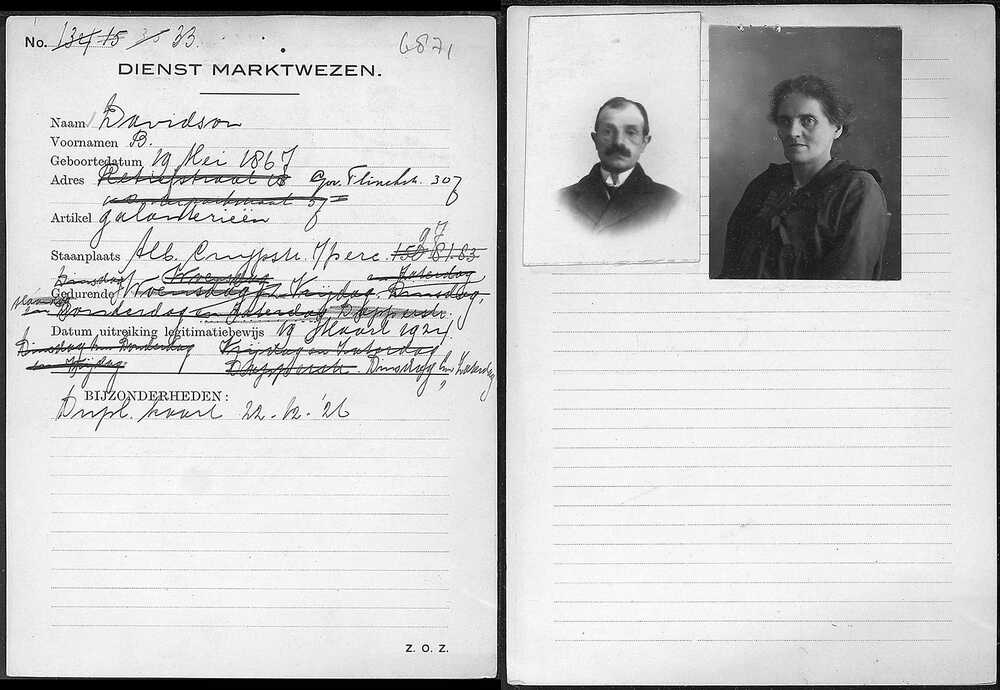 No. 134 15 33. 6871
DIENST MARKTWEZEN.
Naam Davidson
Voornamen B.
Geboortedatum 19 Mei 1867
Adres Retiefstraat 18 Gov. Flinckstr. 307
37 II
Artikel galanterieën
97
Staanplaats Alb. Cuypstr. 150 81.83
Dinsdag Woensdag en Zaterdag
Gedurende Woensdag Vrijdag. Dinsdag,
Donderdag en Zaterdag Dapperstr.
Datum uitreiking legitimatiebewijs 19 Maart 1924
Dinsdag Donderdag Vrijdag en Zaterdag
Vrijdag Dapperstr. Dinsdag en Zaterdag
BIJZONDERHEDEN:
Dupl. kaart 22-12-'26
Z. O. Z.